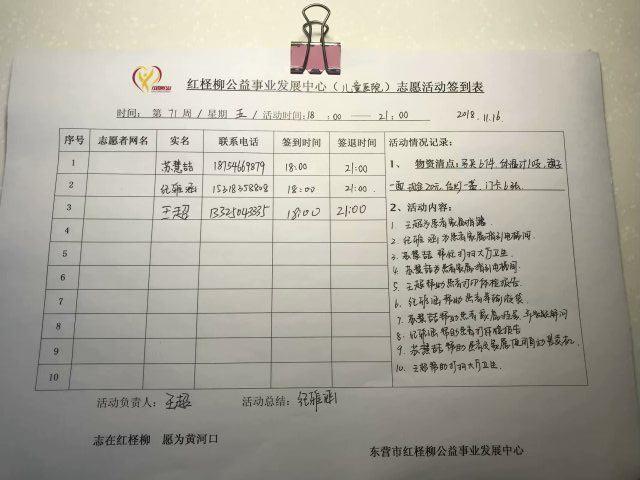 红柽柳公益事业发展中心（儿童医院）志愿活动签到表
时间：第 71 周/星期 五/活动时间:18：00——21：00 2018.11.16
序号 志愿者网名 实名 联系电话 签到时间 签退时间 活动情况记录：
1 苏慧喆 18754669879 18:00 21:00 1、物资清点：
2 纪雅涵 15318358808 18:00 21:00 一面 现金20元, 台灯一盏, 门卡6张
3 王超 13325043335 18:00 21:00 2、活动内容：
4
5
6
7
8
9
10
1. 王超为患者家属指路
2. 纪雅涵为患者家属指引电梯间
3. 苏慧喆帮忙打扫大厅卫生
4. 苏慧喆为患者家属指引电梯间
5. 王超帮助患者打印体检报告
6. 纪雅涵帮助患者
7. 苏慧喆帮助患者家属
8. 纪雅涵帮助患者打印体检报告
9. 苏慧喆帮助患者及家属使用自动售货机
10. 王超帮助打扫大厅卫生
活动负责人：王超 活动总结：纪雅涵
志在红柽柳 愿为黄河口
东营市红柽柳公益事业发展中心